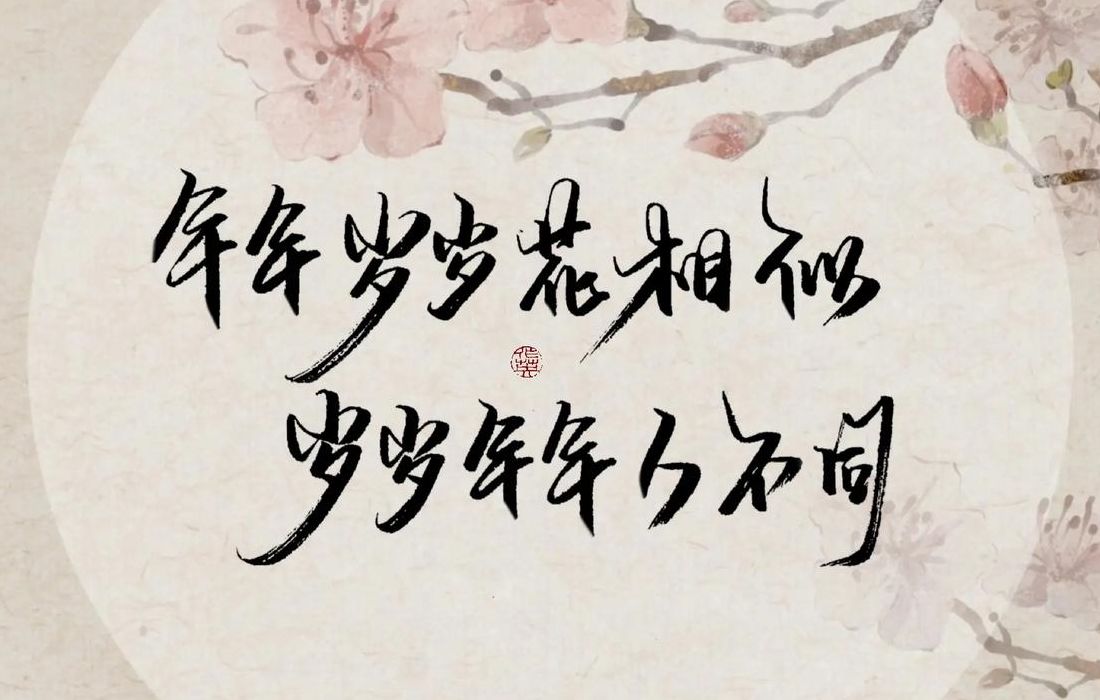 年年岁岁花相似
岁岁年年人不同